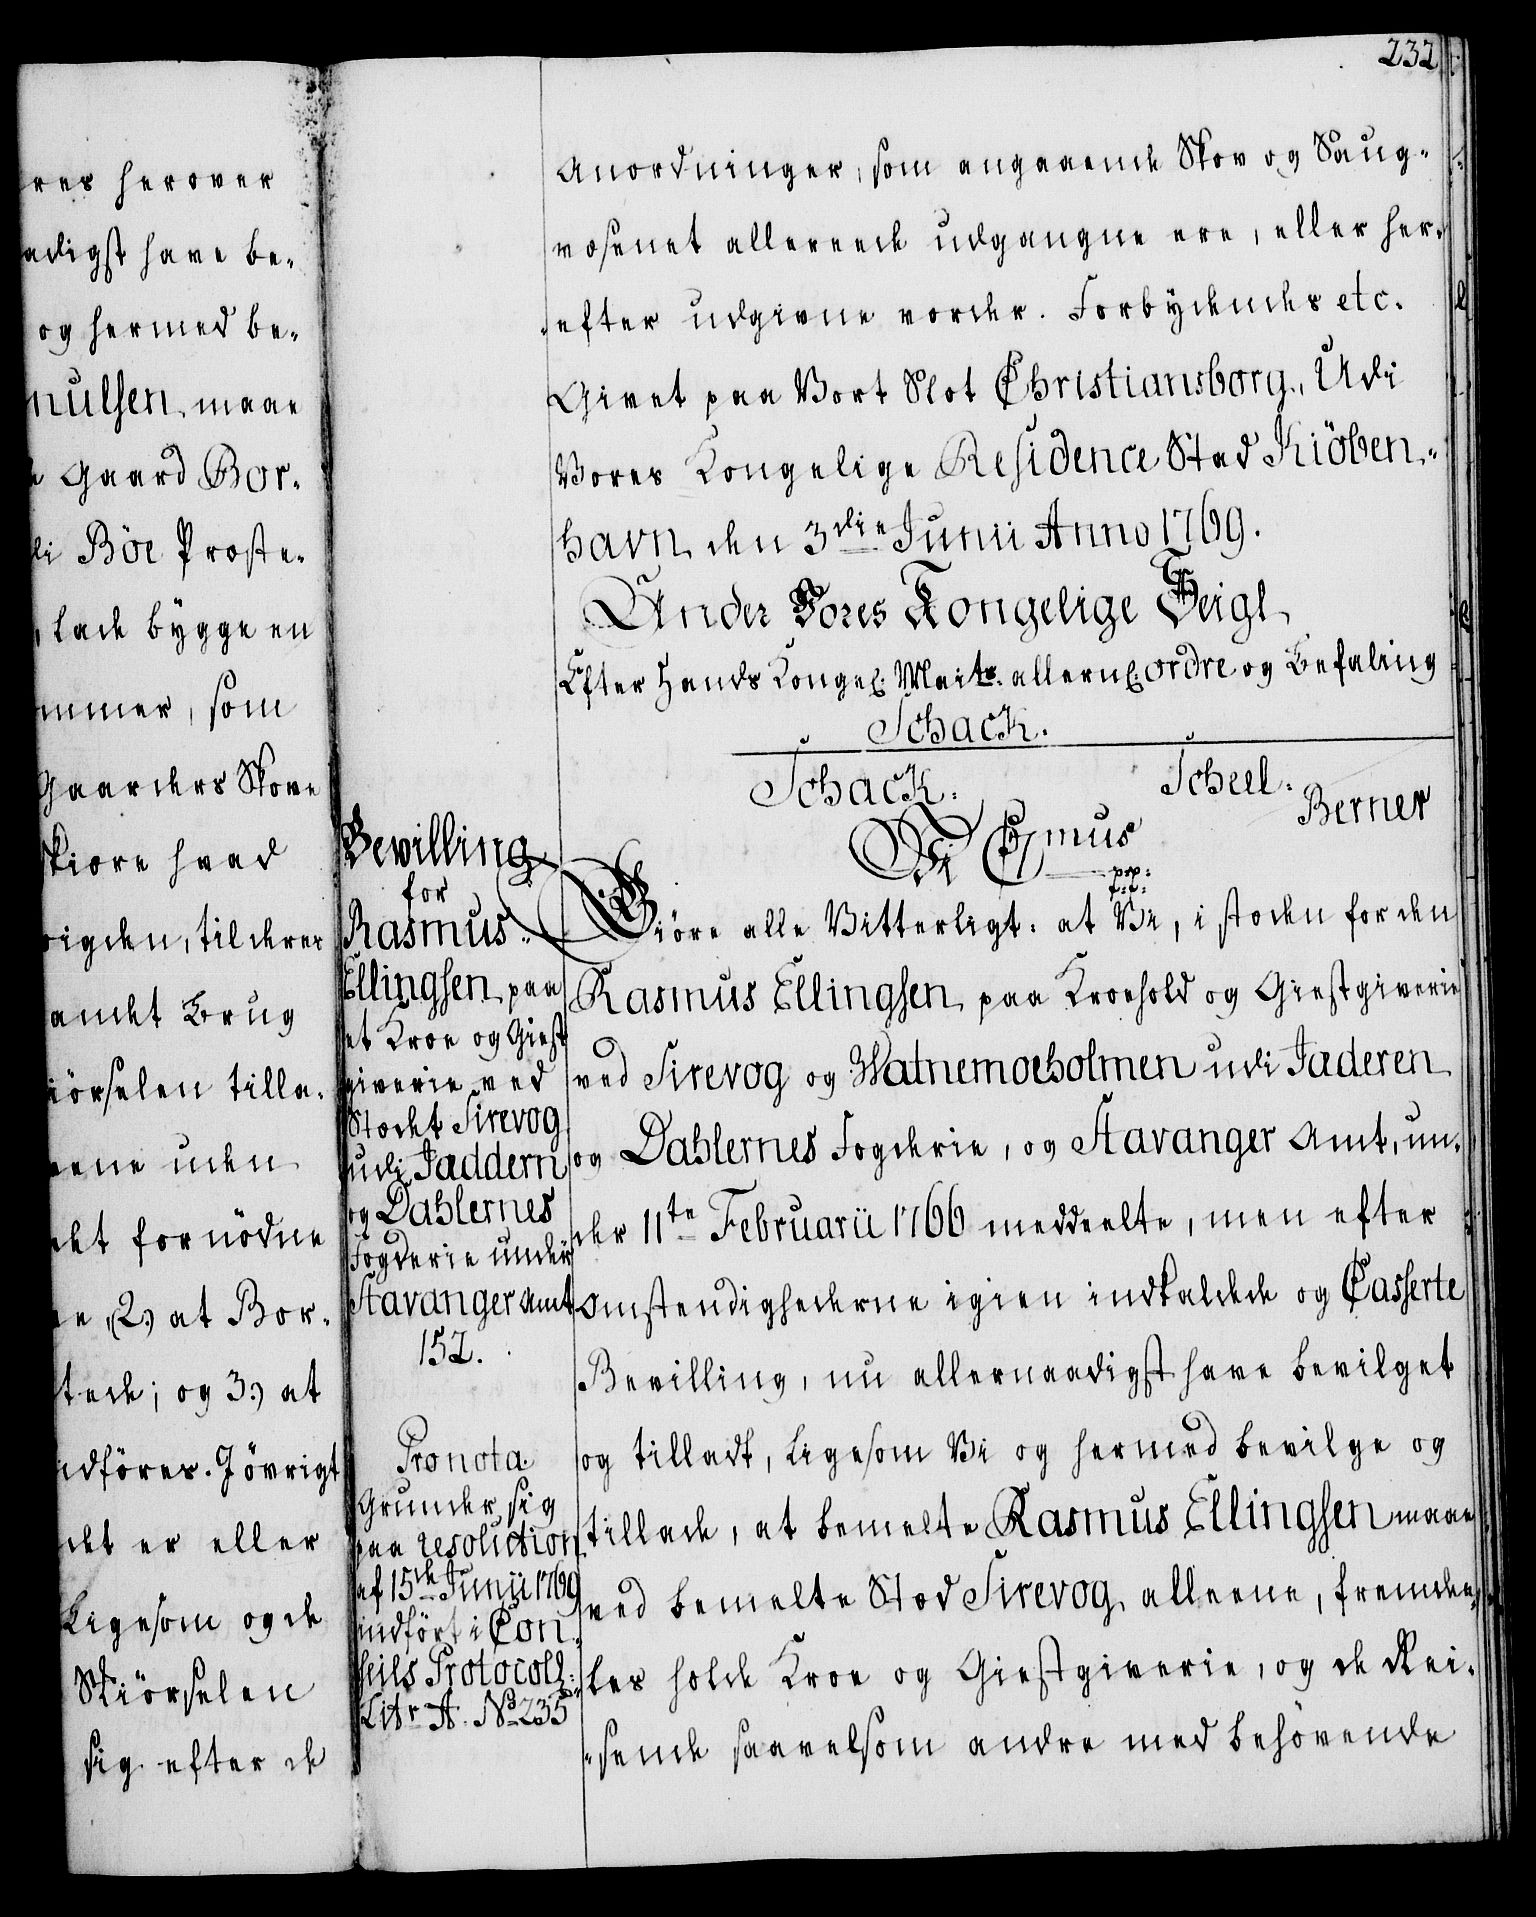 232
res herover
adigst have be-
og hermed be-
mulsen maae
Gaard Bor-
di Böe Proste-
lade bÿgge en
mmer, som
Gaarders Skove
skiære hvad
rigden, til deres
andet Brug
iörselen tilla-
uden
det fornödne
2.) at Bor-
stede; og 3.) at
ndföres. J övrigt
det er eller
Ligesom og de
Skiörselen
sig efter de
Anordninger, som angaaende Skov og Saug-
væsenet allereede udgangne ere, eller her-
efter udgivne vorder. Forbÿdendes etc.
Givet paa Vort Slot Christiansborg, Udi
Vores Kongelige Residence Stad Kiöben-
havn den 3die Junii Anno 1769.
Under Vores Kongelige Seigl
Efter Hands Kongel. Maits. allern. ordre og Befaling
Schack.
Schack. Scheel. Berner
Bevilling
for
Rasmus
Ellingsen paa
et Kroe og Giest
giverie ved
Stædet Sirevog
udi Jaddern
og Dahlernes
Fogderie under
Stavanger Amt
152.
Pronota.
Grunder sig
paa resolution
af 15de Junii 1769
indfört i Con
seils Protocoll:
Litr A. No 235
Vi C7mus
pp:
t:t:
Giöre alle Vitterligt: at Vi, i stæden for den
Rasmus Ellingsen paa Kroehold og Giestgiverie
ved Sirevog og Watnemoeholmen udi Jaderen
og Dahlernes Fogderie, og Stavanger Amt, un-
der 11te Februarii 1766 meddeelte, men efter
Omstendighederne igien indkaldede og Casserte
Bevilling, nu allernaadigst have bevilget
og tilladt, Ligesom Vi og hermed bevilge og
tillade, at bemelte Rasmus Ellingsen maae
ved bemelte Stæd Sirevog alleene, fremde-
les holde Kroe og Giestgiverie, og de Rei-
-sende saavelsom andre med behövende